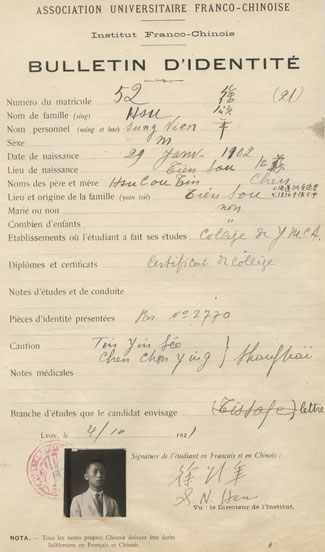 ASSOCIATION UNIVERSITAIRE FRANCO-CHINOISE
Institut Franco-Chinois
BULLETIN D'IDENTITÉ
Numéro du matricule 52 (21)
Nom de famille (sing) Hsu 徐
Nom personnel (ming et hao) Sung Nien 頌年
Sexe m
Date de naissance 29 Janv. 1902
Lieu de naissance Kiensou
Noms des père et mère Hsu Cou Tin Chen
Lieu et origine de la famille (yuen tsié) Kiensou
Marié ou non non
Combien d'enfants "
Etablissements où l'étudiant a fait ses études Collège de Y.M.C.A.
Diplômes et certificats Certificat de collège
Notes d'études et de conduite
Pièces d'identité présentées Pas. N° 2770
Caution Tin Yin Séo
Chen Chon Ying } Shanghaï
Notes médicales
Branche d'études que le candidat envisage (Tissage) lettre
Lyon, le 4/10 1921
Signature de l'étudiant en Français et en Chinois :
徐頌年
S. N. Hsu
Vu : le Directeur de l'Institut,
NOTA. — Tous les noms propres Chinois doivent être écrits
lisiblement en Français et Chinois.